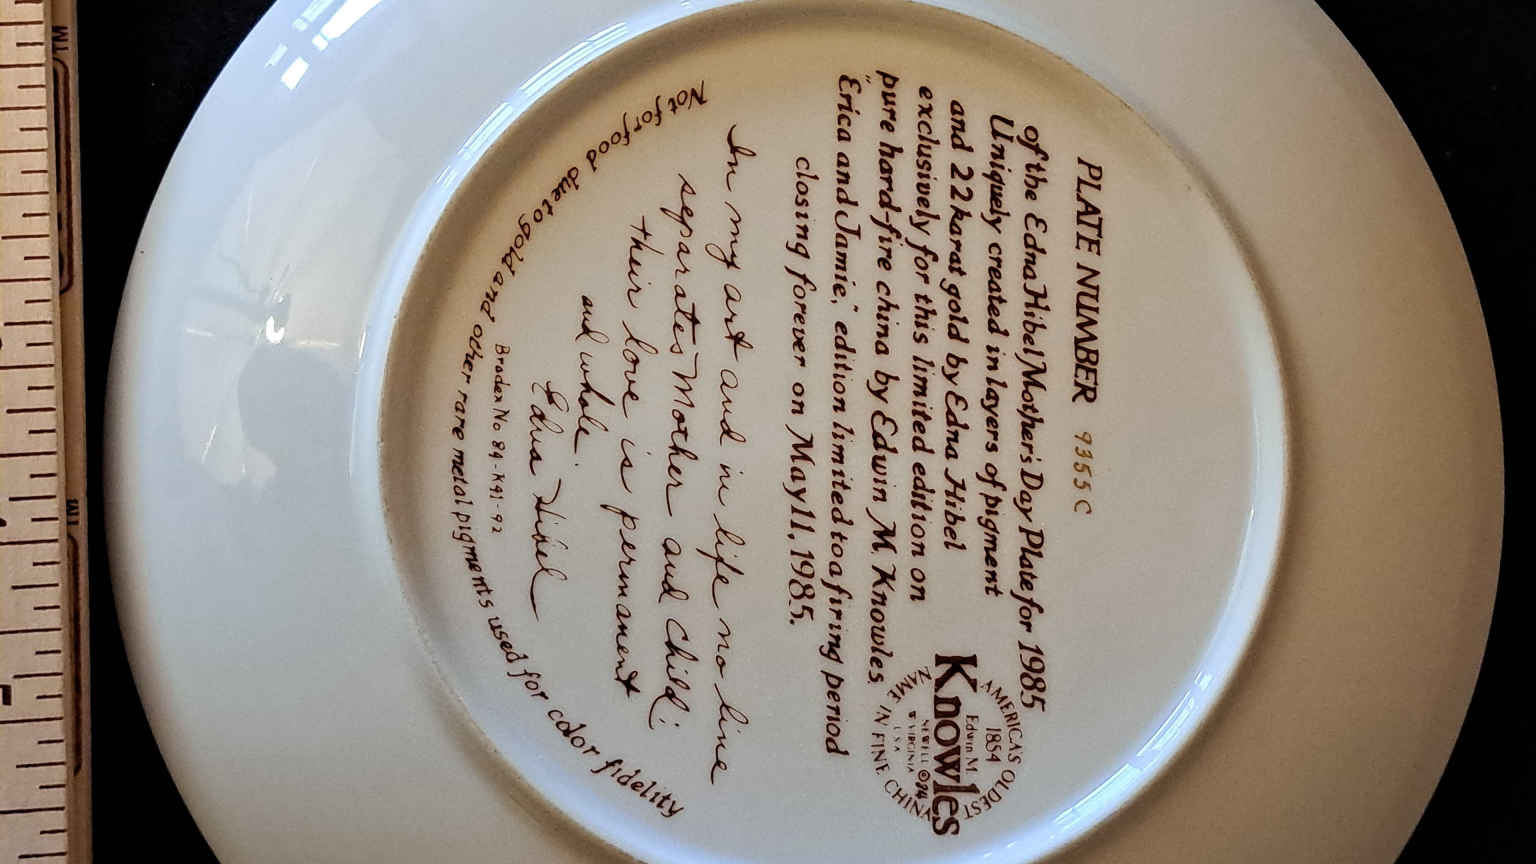 PLATE NUMBER 9355C
of the Edna Hibel Mother's Day Plate for 1985
Uniquely created in layers of pigment
and 22 karat gold by Edna Hibel
exclusively for this limited edition on
pure hard-fire china by Edwin M. Knowles.
"Erica and Jamie," edition limited to a firing period
closing forever on May 11, 1985.
AMERICA'S OLDEST
1854
Edwin M.
Knowles
NEWELL ©84
W. VIRGINIA
U.S.A.
NAME IN FINE CHINA
In my art and in life no line
separates Mother and Child;
their love is permanent
and whole.
Edna Hibel
Bradex No 84-K41-92
Not for food due to gold and other rare metal pigments used for color fidelity
TM
TM